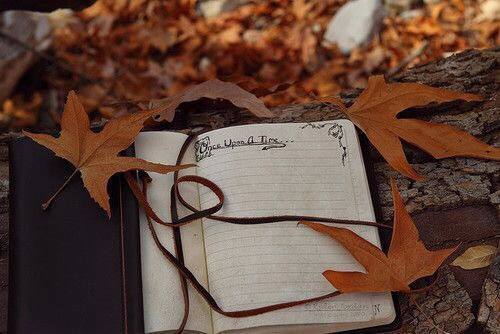 Once Upon A Time...